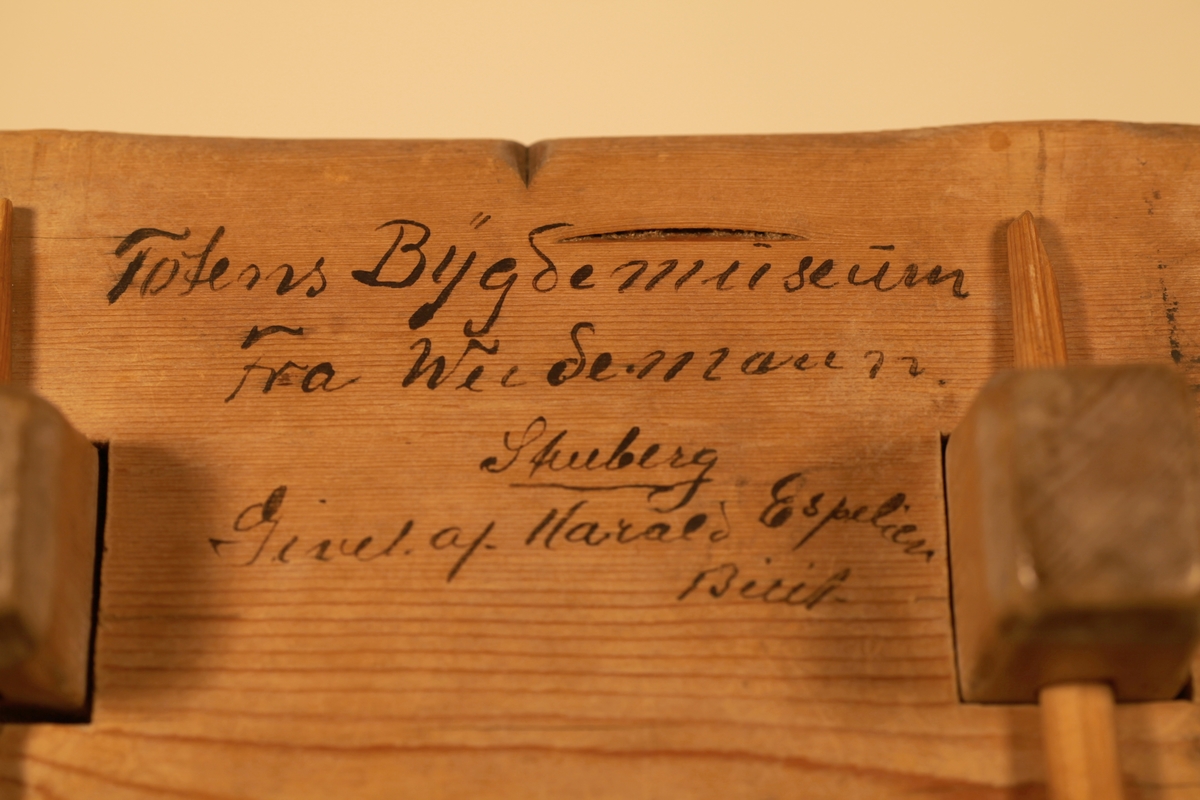 Totens Bÿgdemūseūm
Fra Weidemann.
Stuberg
Givet. af. Harald Espelien
Birit